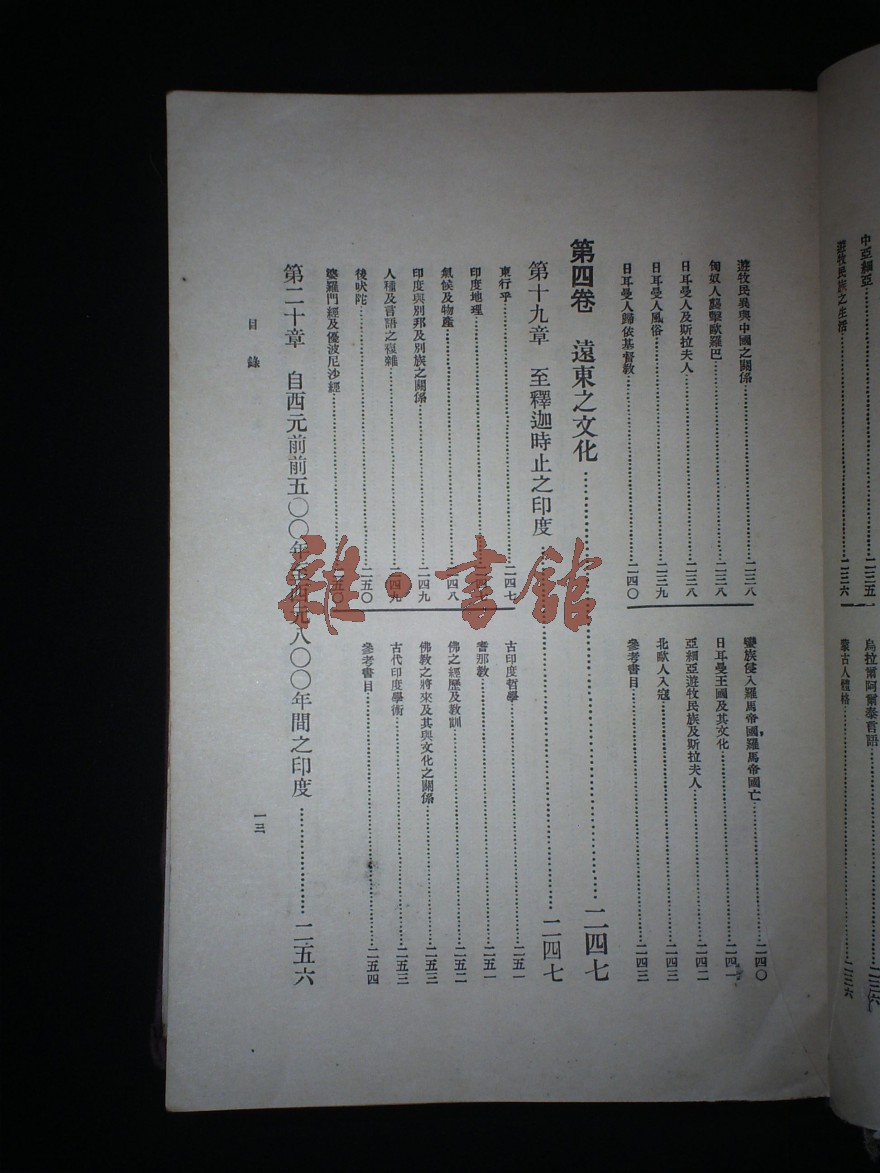 中亞細亞……二三五
遊牧民族之生活……二三六
烏拉爾阿爾泰言語……二三六
蒙古人體格……二三六
遊牧民與中國之關係……二三八
匈奴人襲擊歐羅巴……二三八
日耳曼人及斯拉夫人……二三八
日耳曼人風俗……二三九
日耳曼人歸依基督教……二四〇
蠻族侵入羅馬帝國羅馬帝國亡……二四〇
日耳曼王國及其文化……二四一
亞細亞遊牧民族及斯拉夫人……二四二
北歐人入寇……二四三
參考書目……二四三
第四卷 遠東之文化……二四七
第十九章 至釋迦時止之印度……二四七
東行乎……二四七
印度地理……二四七
氣候及物產……二四八
印度與別邦及別族之關係……二四九
人種及言語之複雜……二四九
後吠陀……二五〇
婆羅門經及優波尼沙經……二五〇
古印度哲學……二五一
耆那教……二五一
佛之經歷及教訓……二五二
佛教之將來及其與文化之關係……二五三
古代印度學術……二五三
參考書目……二五四
第二十章 自西元前前五〇〇年至西元八〇〇年間之印度……二五六
目錄
一三
雜·書館